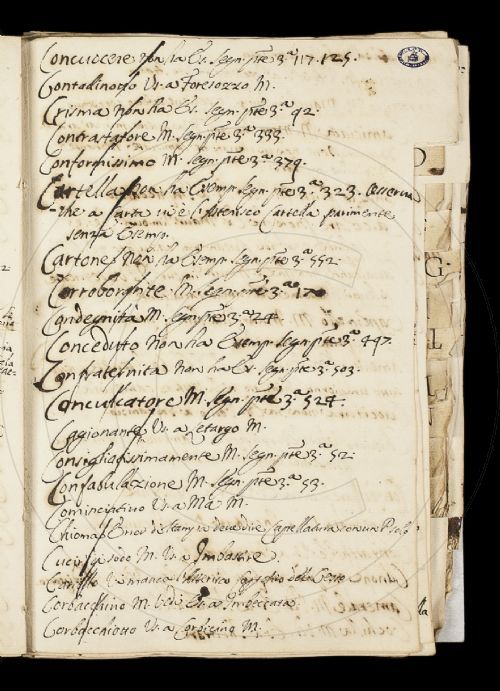 Concuocere non ha Es. segn. pte 3.ª 117. 125.
Contadinotto V. a Foresozzo M.
Crisma non ha Es. segn. pte 3.ª 92.
Contrastatore M. segn. pte 3.ª 333.
Conformissimo M. segn. pte 3.ª 379.
Cartella non ha Esemp. segn. pte 3.ª 323. Osserva
che a Carta vi è l'Asterisco Cartella parimente
senza Esemp.
Cartone non ha Esemp. segn. pte 3.ª 552.
M. segn. pte 3.ª
Condegnità M. segn. pte 3.ª 24
Conceduto non ha Esemp. segn. pte 3.ª 447.
Confraternita non ha Es. segn. pte 3.ª 503.
Conculcatore M. segn. pte 3.ª 524.
Cagionante V. a Letargo M.
Consigliatissimamente M. segn. pte 3.ª 52.
Confabulazione M. segn. pte 3.ª 53.
V. a Ma M.
Chioma Error di Stampa deve dire Capellatura con un P solo
M. V. a Imbastire.
V. manca l'Asterisco
Corbacchino M. vedi Es. a Imbeccata.
Corbacchiotto V. a Corbicino M.
G
L
L